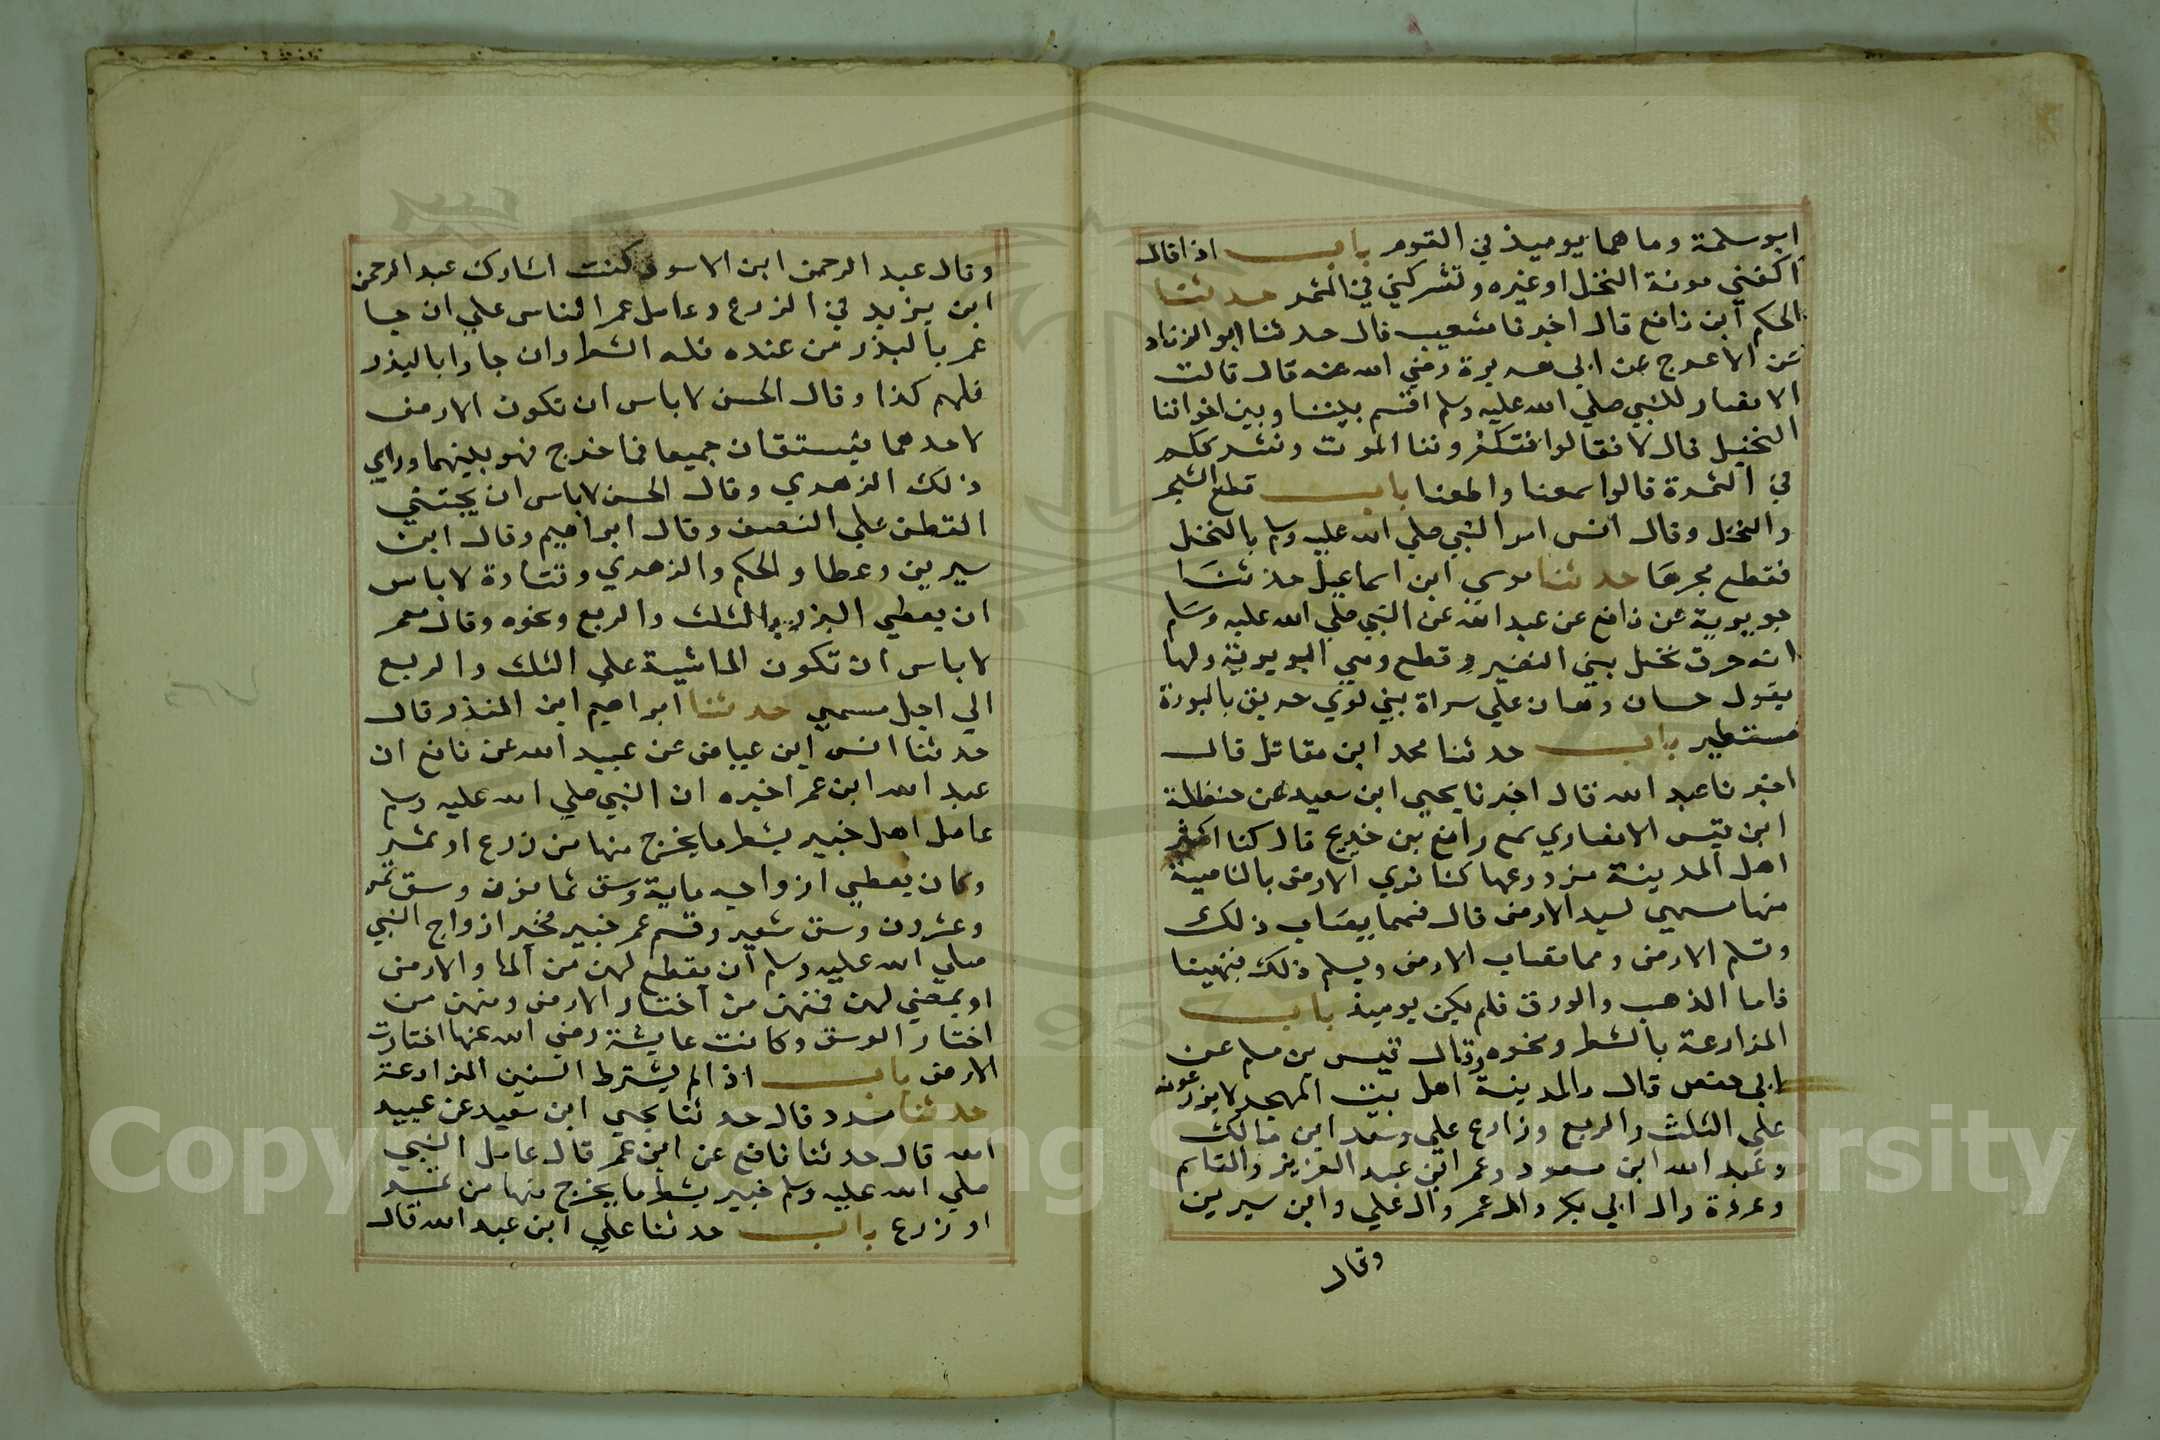 ابو سلمة وما هما يوميذ في القوم باب اذا قال
اكفني مونة النخل او غيره وتشركني في الثمر حدثنا
الحكم ابن نافع قال اخبرنا شعيب قال حدثنا ابو الزناد
عن الاعرج عن ابي هريرة رضي الله عنه قال قالت
الانصار للنبي صلي الله عليه وسلم اقسم بيننا وبين اخواننا
النخيل قال لا فقالوا فتكفوننا الموت ونشرككم
في الثمرة قالوا سمعنا واطعنا باب قطع الشجر
والنخل وقال انس امر النبي صلي الله عليه وسلم بالنخل
فقطع مجرها حدثنا موسي ابن اسماعيل حدثنا
جويرية عن نافع عن عبد الله عن النبي صلي الله عليه وسلم
انه حرق نخل بني النضير وقطع وهي البويرة ولها
يقول حسان وهان علي سراة بني لوي حريق بالبورة
مستطير باب حدثنا محمد ابن مقاتل قال
اخبرنا عبد الله قال اخبرنا يحيي ابن سعيد عن حنظلة
ابن قيس الانصاري سمع رافع بن خديج قال كنا اكثر
اهل المدينة مزدرعا كنا نري الارض بالناحية
منها مسمي لسيد الارض قال فمما يصاب ذلك
وتسلم الارض ومما تصاب الارض ويسلم ذلك فنهينا
فاما الذهب والورق فلم يكن يوميذ باب
المزارعة بالشطر ونحوه وقال قيس بن مسلم عن
ابي حفص قال والمدينة اهل بيت المهجر لا يزرعون
علي الثلث والربع وزارع علي وسعد ابن مالك
وعبد الله ابن مسعود وعمر ابن عبد العزيز والقاسم
وعروة وال ابي بكر وال عمر وال علي وابن سيرين
وقال
وقال عبد الرحمن ابن الاسود كنت اشارك عبد الرحمن
ابن يزيد في الزرع وعامل عمر الناس علي ان جا
عمر بالبذر من عنده فله الشطر وان جاوا بالبذر
فلهم كذا وقال الحسن لا باس ان تكون الارض
لاحدهما فيستقان جميعا فما خرج فهو بينهما وراي
ذلك الزهري وقال الحسن لا باس ان يجتني
القطن علي النصف وقال ابراهيم وقال ابن
سيرين وعطا والحكم والزهري وقتادة لا باس
ان يعطي البزر بالثلث والربع ونحوه وقال معمر
لا باس ان تكون الماشية علي الثلث والربع
الي اجل مسمي حدثنا ابراهيم ابن المنذر قال
حدثنا انس ابن عياض عن عبيد الله عن نافع ان
عبد الله ابن عمر اخبره ان النبي صلي الله عليه وسلم
عامل اهل خيبر بشطر ما يخرج منها من زرع او ثمر
وكان يعطي ازواجه ماية وسق ثمانون وسق تمر
وعشرون وسق شعير وقسم عمر خيبر فخير ازواج النبي
صلي الله عليه وسلم ان يقطع لهن من الما والارض
او يمضي لهن فمنهن من اختار الارض ومنهن من
اختار الوسق وكانت عايشة رضي الله عنها اختارت
الارض باب اذا لم يشترط السنين المزارعة
حدثنا مسدد قال حدثنا يحيي ابن سعيد عن عبيد
الله قال حدثنا نافع عن ابن عمر قال عامل النبي
صلي الله عليه وسلم خيبر بشطر ما يخرج منها من ثمر
او زرع باب حدثنا علي ابن عبد الله قال